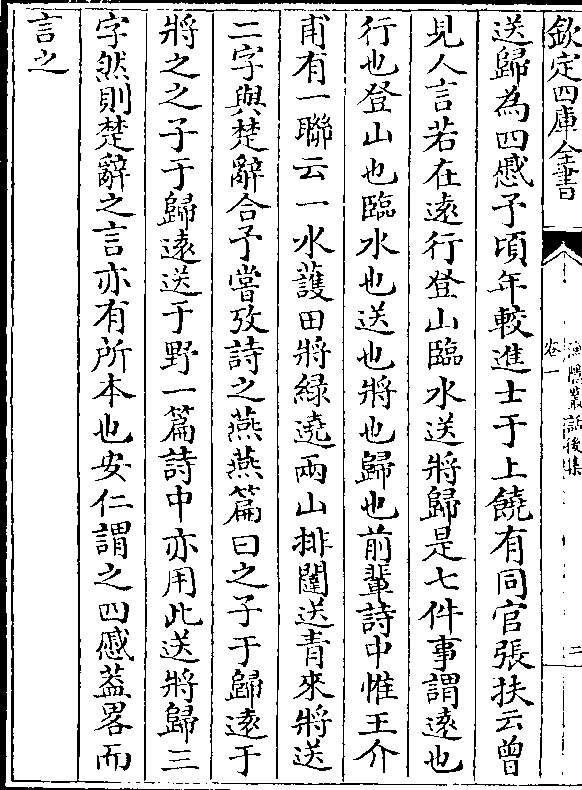 欽定四庫全書
漁隱叢話後集
卷一
二
送歸為四慼予頃年較進士于上饒有同官張扶云曽
見人言若在逺行登山臨水送將歸是七件事謂逺也
行也登山也臨水也送也將也歸也前輩詩中惟王介
甫有一聯云一水䕶田將緑遶兩山排闥送青來將送
二字與楚辭合予嘗攷詩之燕燕篇曰之子于歸逺于
將之之子于歸逺送于野一篇詩中亦用此送將歸三
字然則楚辭之言亦有所本也安仁謂之四慼葢畧而
言之